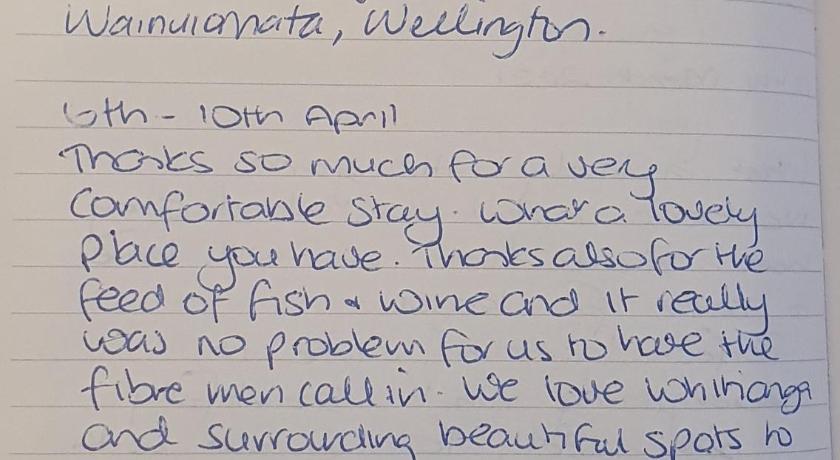 Wainuiomata, Wellington.
6th - 10th April
Thanks so much for a very
comfortable stay. What a lovely
place you have. Thanks also for the
feed of fish & wine and it really
was no problem for us to have the
fibre men call in. We love Whitianga
and surrounding beautiful spots to